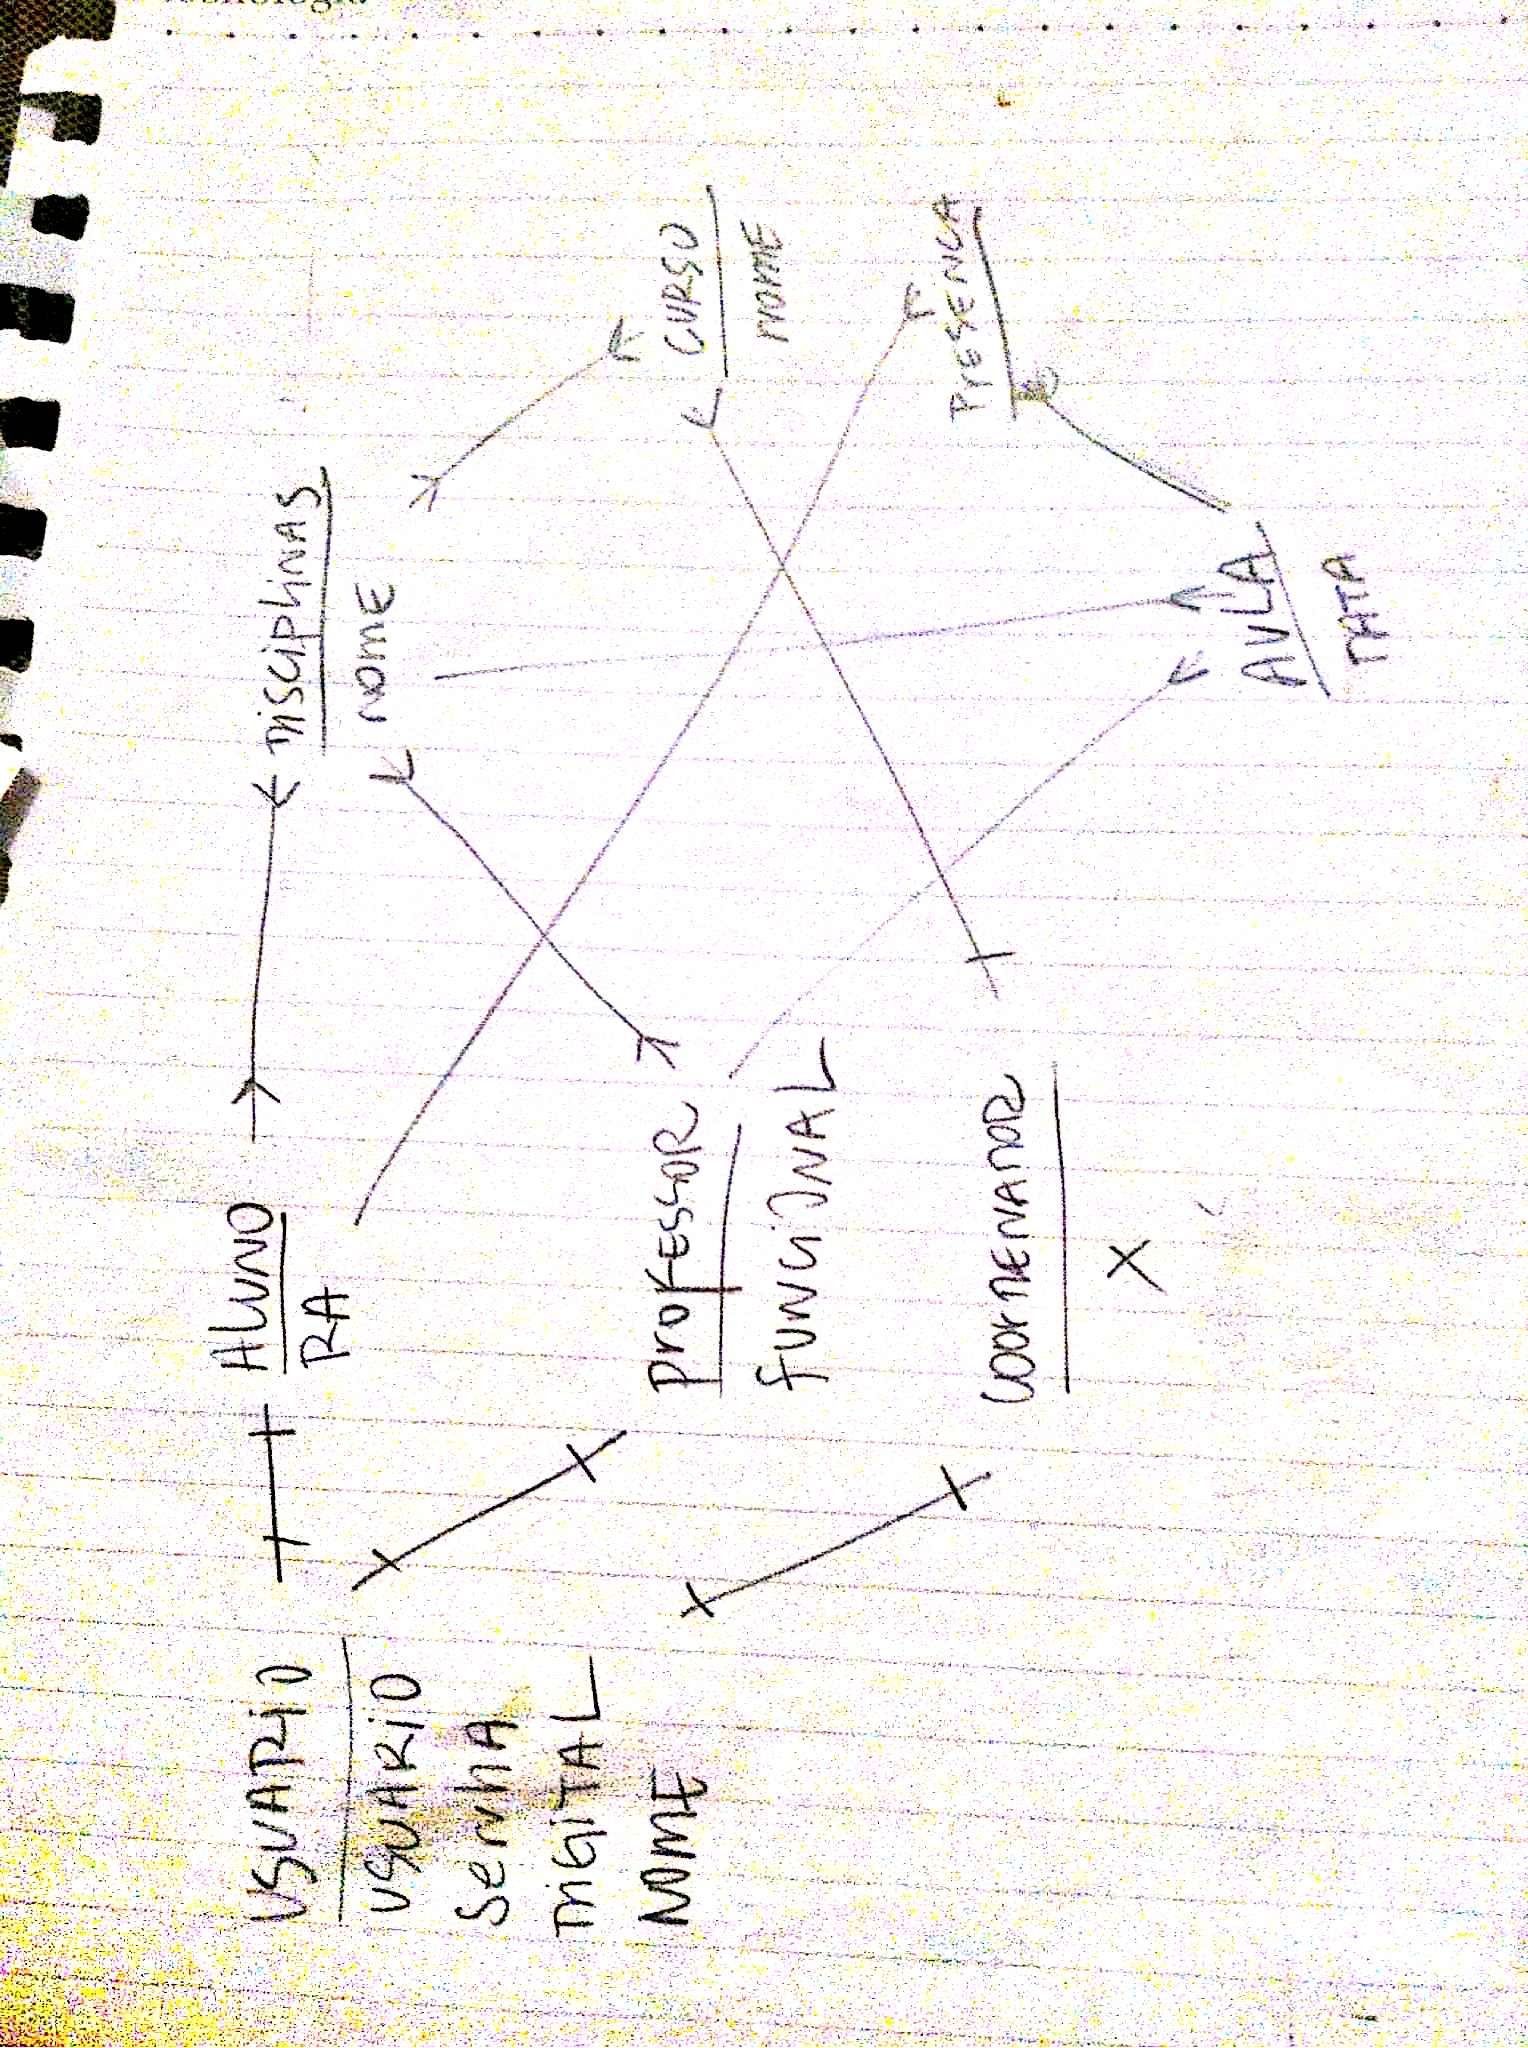 USUARIO
USUARIO
SENHA
DIGITAL
NOME
ALUNO
RA
PROFESSOR
FUNCIONAL
COORDENADOR
X
DISCIPLINAS
NOME
CURSO
NOME
PRESENCA
AULA
DATA